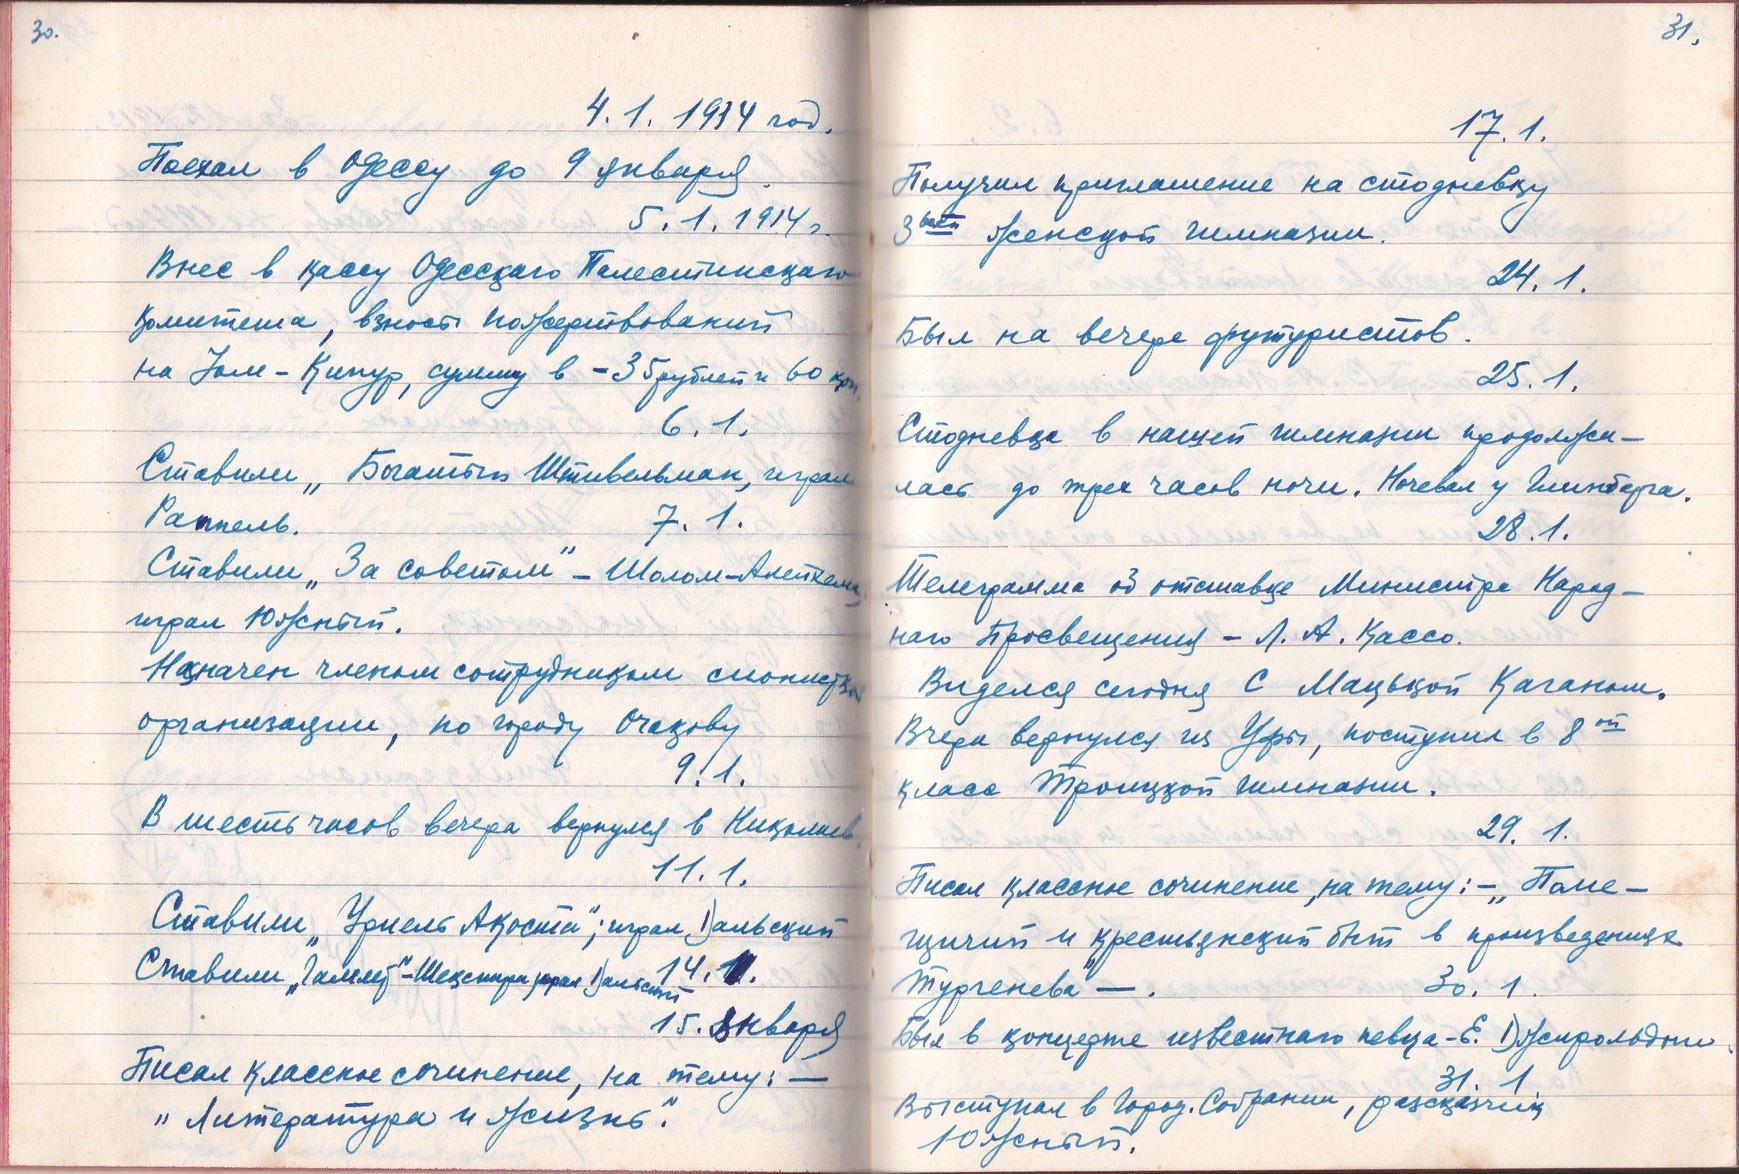 30.
4. 1. 1914 год.
Поехал в Одессу до 9 января.
5. 1. 1914 г.
Внес в кассу Одесскаго Палестинскаго
Комитета, взност пожертвований
на Иом-Кипур, сумму в - 35 рублей и 60 коп.
6. 1.
Ставили „Богатый Штивельман, играл
Раппель. 7. 1.
Ставили „За советом" - Шолом-Алейхема,
играл Южный.
Назначен членом сотрудником сионистской
организации, по городу Очакову
9. 1.
В шесть часов вечера вернулся в Николаев.
11. 1.
Ставили „Уриель Акоста"; играл Дальский
Ставили „Гамлет" - Шекспира играл Дальский 14. 1.
15. Января
Писал классное сочинение, на тему: —
„Литература и жизнь".
31.
17. 1.
Получил приглашение на стодневку
3 женской гимназии.
24. 1.
Был на вечере футуристов.
25. 1.
Стодневка в нашей гимназии продолжа-
лась до трех часов ночи. Ночевал у Гинзберга.
28. 1.
Телеграмма об отставке Министра Народ-
наго Просвещения - Л. А. Кассо.
Виделся сегодня с Мацькой Каганом.
Вчера вернулся из Уфы, поступил в 8 ой
класс Троицкой гимназии.
29. 1.
Писал классное сочинение, на тему: - „Поме-
щичий и крестьянский быт в произведениях
Тургенева" — . 30. 1.
Был в концерте известнаго певца - Е. Джиральдони.
31. 1
Выступал в Город. Собрании, рассказчик
Южный.